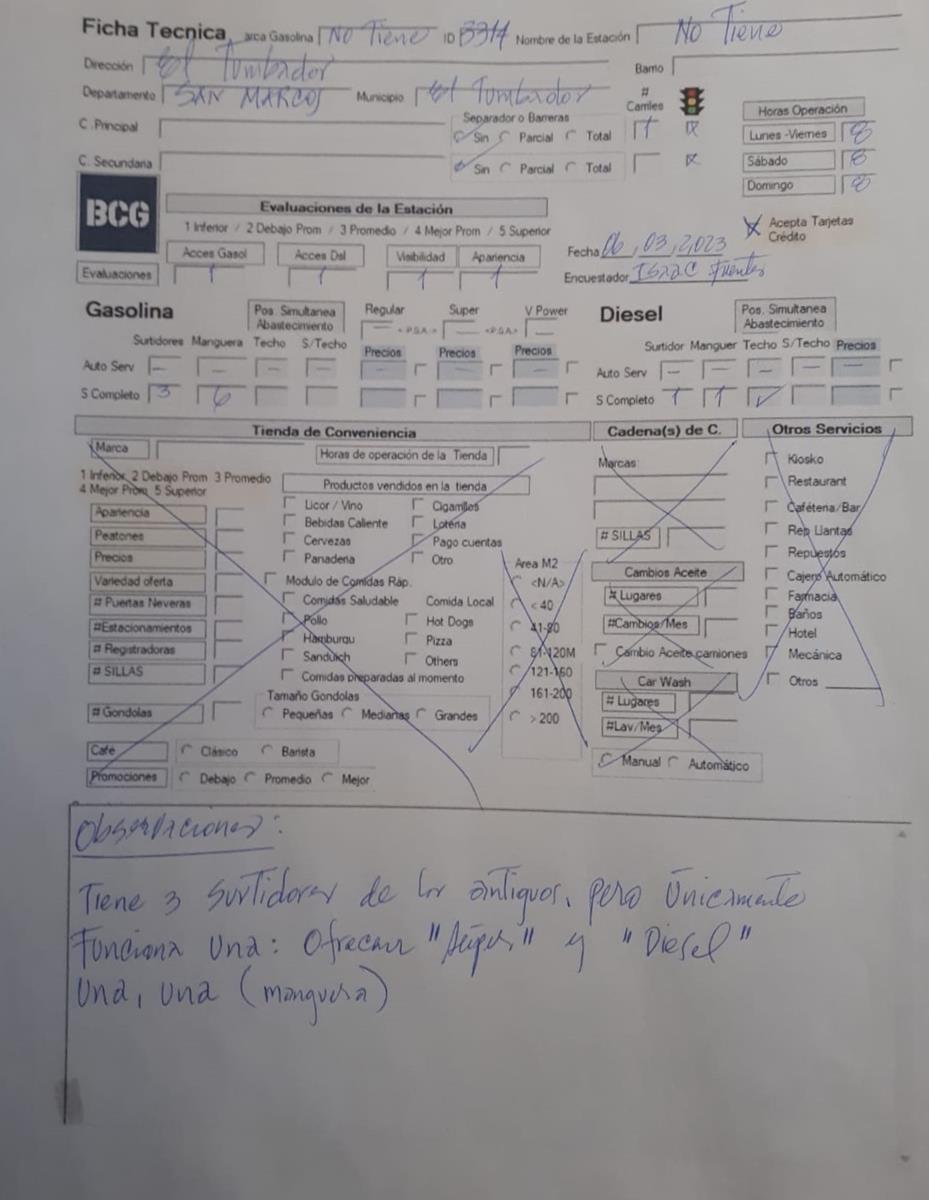 Ficha Tecnica arca Gasolina No Tiene ID 3314 Nombre de la Estación No Tiene
Dirección El Tumbador Barrio
Departamento SAN MARCOS Municipio El Tumbador # Carriles
C. Principal Separador o Barreras Sin Parcial Total 1
C. Secundaria Sin Parcial Total
Horas Operación
Lunes -Viernes 8
Sábado 8
Domingo 8
BCG
Evaluaciones de la Estación
1 Inferior / 2 Debajo Prom / 3 Promedio / 4 Mejor Prom / 5 Superior
X Acepta Tarjetas Crédito
Acces Gasol Acces Dsl Visibilidad Apariencia
Fecha 06, 03, 2,023
Evaluaciones 1 1 1 1
Encuestador ISAAC Fuentes
Gasolina Pos. Simultanea Abastecimiento Regular Super V Power
— <PSA> — <PSA> —
Surtidores Manguera Techo S/Techo Precios Precios Precios
Auto Serv — — — — — — —
S Completo 3 6
Diesel Pos. Simultanea Abastecimiento
Surtidor Manguer Techo S/Techo Precios
Auto Serv — — — — —
S Completo 1 1 ✓
Tienda de Conveniencia
Marca Horas de operación de la Tienda
1 Inferior 2 Debajo Prom 3 Promedio
4 Mejor Prom 5 Superior
Apariencia
Peatones
Precios
Variedad oferta
# Puertas Neveras
#Estacionamientos
# Registradoras
# SILLAS
# Gondolas
Café Clásico Barista
Promociones Debajo Promedio Mejor
Productos vendidos en la tienda
Licor / Vino Cigarrillos
Bebidas Caliente Loteria
Cervezas Pago cuentas
Panaderia Otro
Modulo de Comidas Ráp.
Comidas Saludable Comida Local
Pollo Hot Dogs
Hamburgu Pizza
Sandüich Others
Comidas preparadas al momento
Tamaño Gondolas
Pequeñas Medianas Grandes
Area M2
<N/A>
< 40
41-80
81-120M
121-160
161-200
> 200
Cadena(s) de C.
Marcas:
# SILLAS
Cambios Aceite
# Lugares
#Cambios/Mes
Cambio Aceite camiones
Car Wash
# Lugares
#Lav/Mes
Manual Automático
Otros Servicios
Kiosko
Restaurant
Caféteria/Bar
Rep Llantas
Repuestos
Cajero Automático
Farmacia
Baños
Hotel
Mecánica
Otros
Observaciones:
Tiene 3 surtidores de los antiguos, pero Únicamente
Funciona Una: Ofrecen "Súper" y "Diesel"
Una, una (manguera)